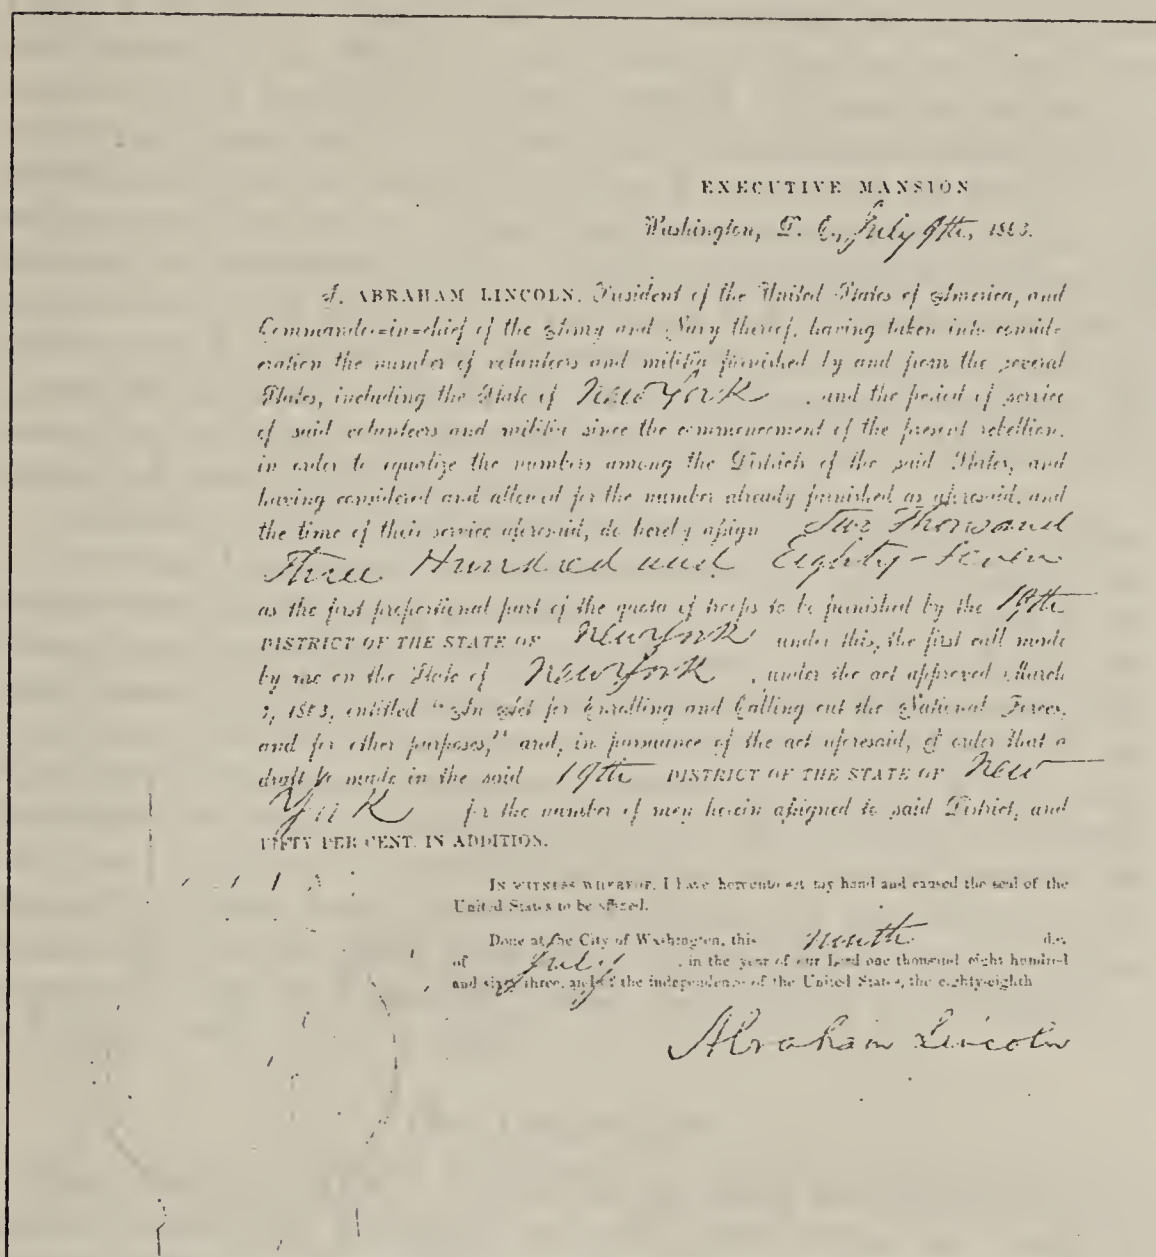 EXECUTIVE MANSION
Washington, D. C., July 9th, 1863.
I, ABRAHAM LINCOLN, President of the United States of America, and
Commander-in-chief of the Army and Navy thereof, having taken into consid-
eration the number of volunteers and militia furnished by and from the several
States, including the State of New York, and the period of service
of said volunteers and militia since the commencement of the present rebellion,
in order to equalize the numbers among the Districts of the said States, and
having considered and allowed for the number already furnished as aforesaid, and
the time of their service aforesaid, do hereby assign Two Thousand
Three Hundred and Eighty-Seven
as the first proportional part of the quota of troops to be furnished by the 19th
DISTRICT OF THE STATE OF New York under this, the first call made
by me on the State of New York, under the act approved March
3, 1863, entitled "An Act for Enrolling and Calling out the National Forces,
and for other purposes," and, in pursuance of the act aforesaid, I order that a
draft be made in the said 19th DISTRICT OF THE STATE OF New
York for the number of men herein assigned to said District, and
FIFTY PER CENT. IN ADDITION.
IN WITNESS WHEREOF, I have hereunto set my hand and caused the seal of the
United States to be affixed.
Done at the City of Washington, this ninth day
of July, in the year of our Lord one thousand eight hundred
and sixty three, and of the independence of the United States, the eighty-eighth
Abraham Lincoln